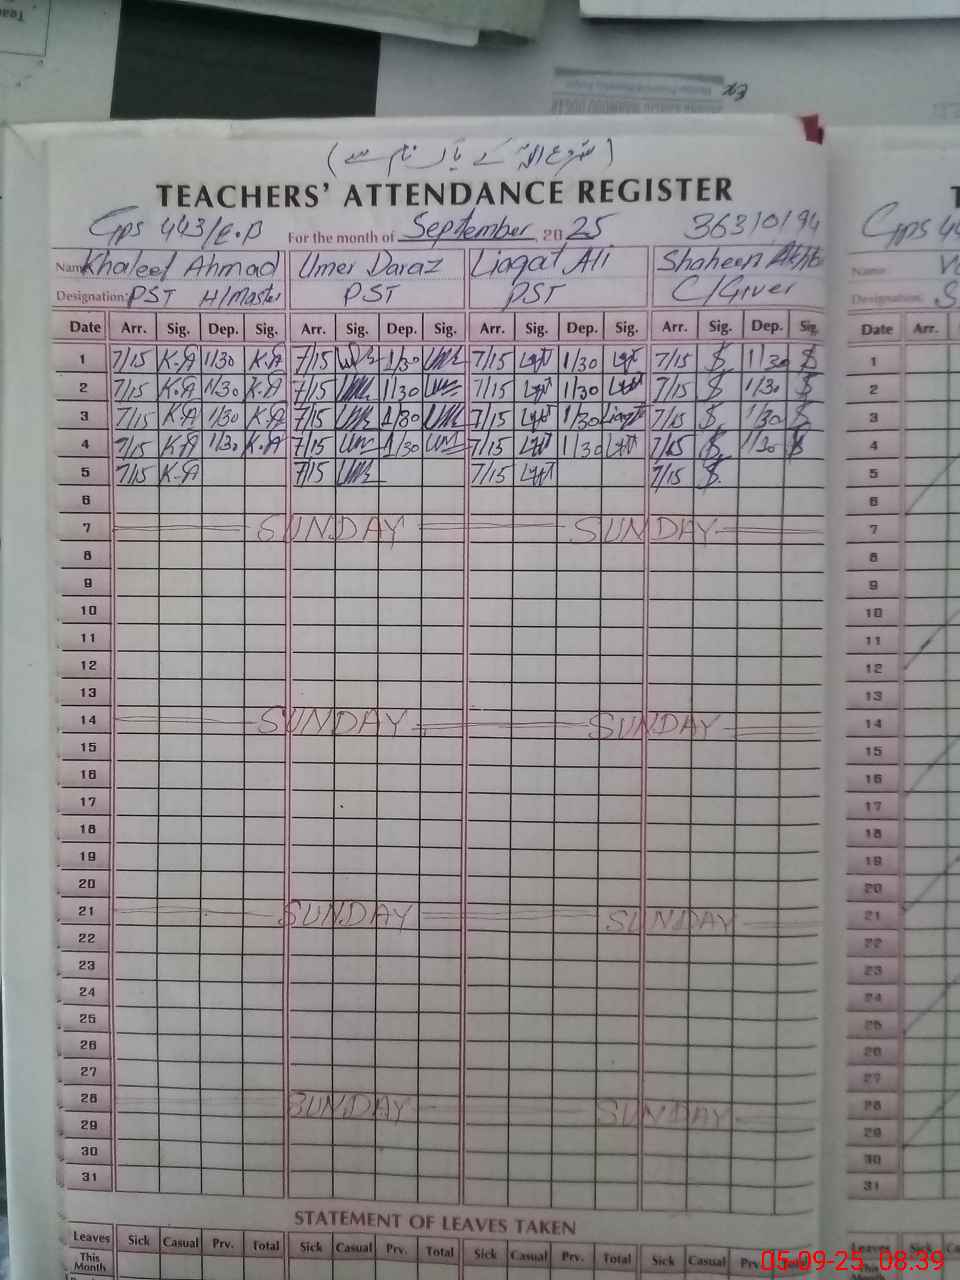 TEACHERS' ATTENDANCE REGISTER
Gps 443/E.B For the month of September, 2025 36310194
Name Khaleel Ahmad Umer Daraz Liaqat Ali Shaheen
Designation: PST H/Master PST PST C/Giver
Date Arr. Sig. Dep. Sig. Arr. Sig. Dep. Sig. Arr. Sig. Dep. Sig. Arr. Sig. Dep. Sig.
1 7/15 K.A 1/30 K.A 7/15 1/30 7/15 1/30 7/15 1/30
2 7/15 K.A 1/30 K.A 7/15 1/30 7/15 1/30 7/15 1/30
3 7/15 K.A 1/30 K.A 7/15 1/30 7/15 1/30 7/15 1/30
4 7/15 K.A 1/30 K.A 7/15 1/30 7/15 1/30 7/15 1/30
5 7/15 K.A 7/15 7/15 7/15
6
7 SUNDAY SUNDAY
8
9
10
11
12
13
14 SUNDAY SUNDAY
15
16
17
18
19
20
21 SUNDAY SUNDAY
22
23
24
25
26
27
28 SUNDAY SUNDAY
29
30
31
STATEMENT OF LEAVES TAKEN
Leaves Sick Casual Prv. Total Sick Casual Prv. Total Sick Casual Prv. Total Sick Casual Prv. Total
This Month
Gps 44
Name
Designation: S
Date Arr.
1
2
3
4
5
6
7
8
9
10
11
12
13
14
15
16
17
18
19
20
21
22
23
24
25
26
27
28
29
30
31
Leaves Sick
This
05-09-25 08:39